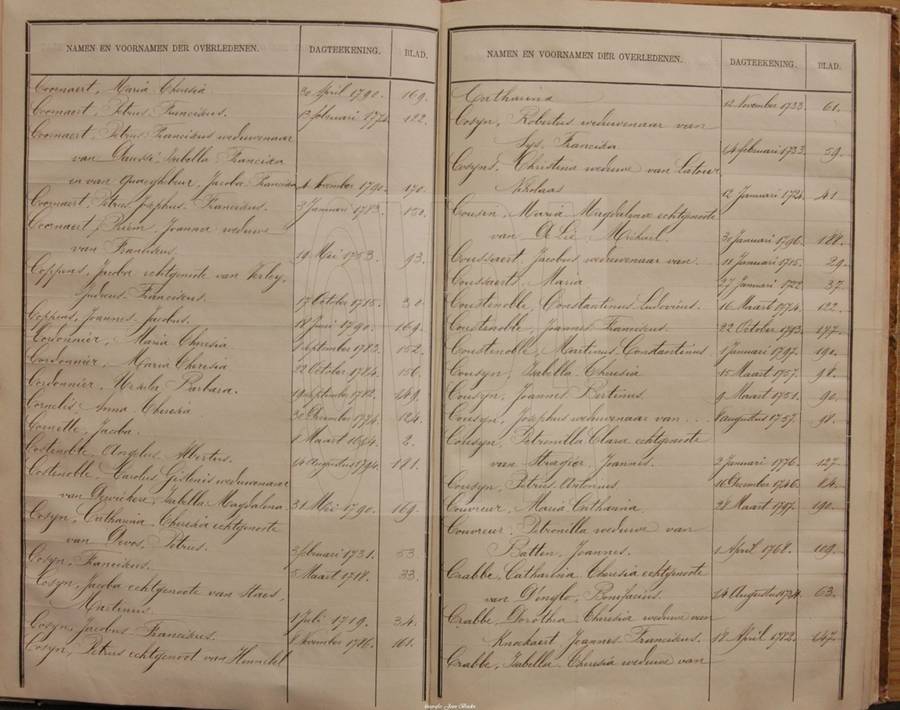 NAMEN EN VOORNAMEN DER OVERLEDENEN. DAGTEEKENING. BLAD.
Coornaert, Maria Theresia 20 April 1790. 169.
Coornaert, Petrus Franciscus. 13 februari 1774 122.
Coornaert, Petrus Franciscus weduwenaar
van Isabella Francisca
en van Jacoba Francisca 4 November 1790. 170.
Coornaert, Petrus Josephus Franciscus. 3 Januari 1783. 150.
Coornaert, Joanna weduwe
van Franciscus. 19 Mei 1753 93.
Coppens, Jacoba echtgenote van
Franciscus. 17 October 1715. 30.
Coppens, Joannes Jacobus. 18 Juni 1790. 169.
Cordonnier, Maria Theresia September 1783. 152.
Cordonnier, Maria Theresia 22 October 1784. 156.
Cordonnier, Ursula Barbara. 19 September 1782. 149.
Cornelis, Anna Theresia 30 December 1774 124.
Cornette, Jacoba. 1 Maart 2.
Costenoble, Angelus Albertus. 14 Augustus 1794 181.
Costenoble, Carolus Gislenis weduwenaar
van Isabella Magdalena. 31 Mei 1790. 169.
Cosyn, Catharina Theresia echtgenote
van Devos, Petrus. 3 februari 1731. 53.
Cosyn, Franciscus. 5 Maart 1718. 33.
Cosyn, Jacoba echtgenote van Staes,
Martinus. 1 Juli 1719. 34.
Cosyn, Jacobus Franciscus. November 1786. 161.
Cosyn, Petrus echtgenoot van
NAMEN EN VOORNAMEN DER OVERLEDENEN. DAGTEEKENING. BLAD.
Catharina 12 November 1733. 61.
Cosyn, Robertus weduwenaar van
Sys, Francisca 14 februari 1733. 59.
Cosyns, Christina weduwe van Latour
Nikolaas 12 Januari 1724. 41.
Cousin, Maria Magdalena echtgenoote
van Michael. 30 Januari 1796. 188.
Coussaert, Jacobus weduwenaar van. 11 Januari 1715. 29.
Coussaert, Maria 27 Januari 1722 37.
Coustenoble, Constantinus Ludovicus. 16 Maart 1774. 122.
Coustenoble, Joannes Franciscus 22 October 1793. 177.
Coustenoble, Martinus Constantinus 1 Januari 1797. 190.
Cousyn, Isabella Theresia 15 Maart 1757. 98.
Cousyn, Joannes Bertinus. 9 Maart 1751. 90.
Cousyn, Josephus weduwenaar van ... 8 Augustus 1757. 98.
Cousyn, Petronilla Clara echtgenoote
van Stragier, Joannes. 2 Januari 1776. 127.
Cousyn, Petrus Antonius 10 December 1746. 84.
Couvreur, Maria Catharina 28 Maart 1797. 190.
Couvreur, Petronilla weduwe van
Batten, Joannes. 1 April 1768. 109.
Crabbe, Catharina Theresia echtgenote
van Bonifacius. 24 Augustus 1734. 63.
Crabbe, Dorothea Theresia weduwe van
Knockaert Joannes Franciscus. 18 April 1782. 147.
Crabbe, Isabella Theresia weduwe van